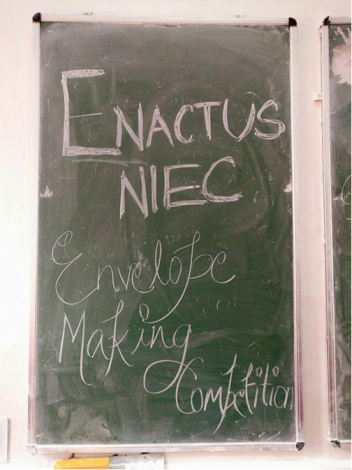 ENACTUS
NIEC
Envelope
Making
Competition